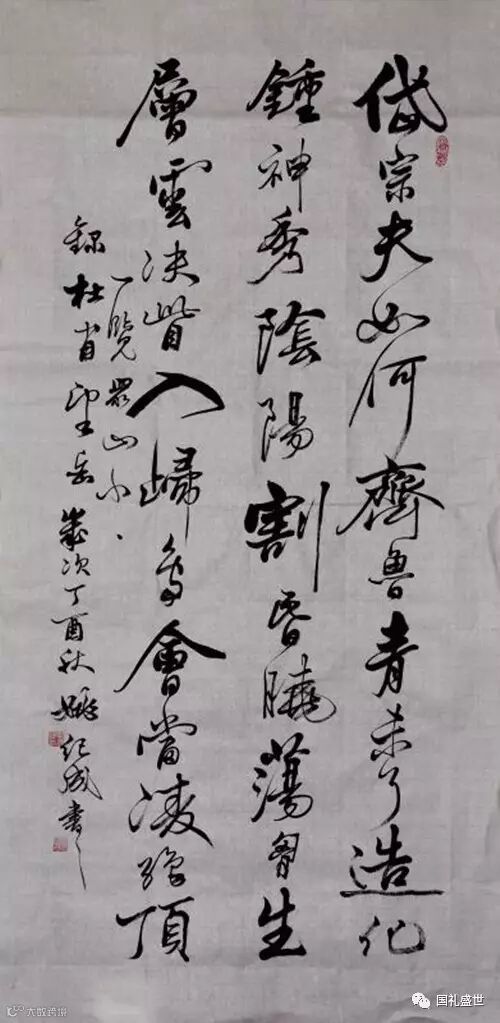 岱宗夫如何齊魯青未了造化
鍾神秀陰陽割昏曉蕩胷生
層雲决眥入歸鳥會當凌絕頂
一覽眾山小
錄杜甫望岳歲次丁酉秋姚紀成書
大数跨境
国礼盛世